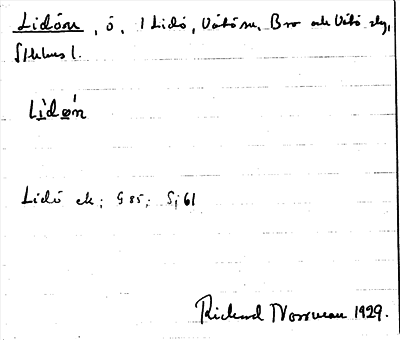 Lidön, ö, i Lidö, Vätö sn, Bro och Vätö slg,
Sthlms l.
Lìdø̀n
Lidö ek; G 85; Sj 61
Richard Norrman 1929.